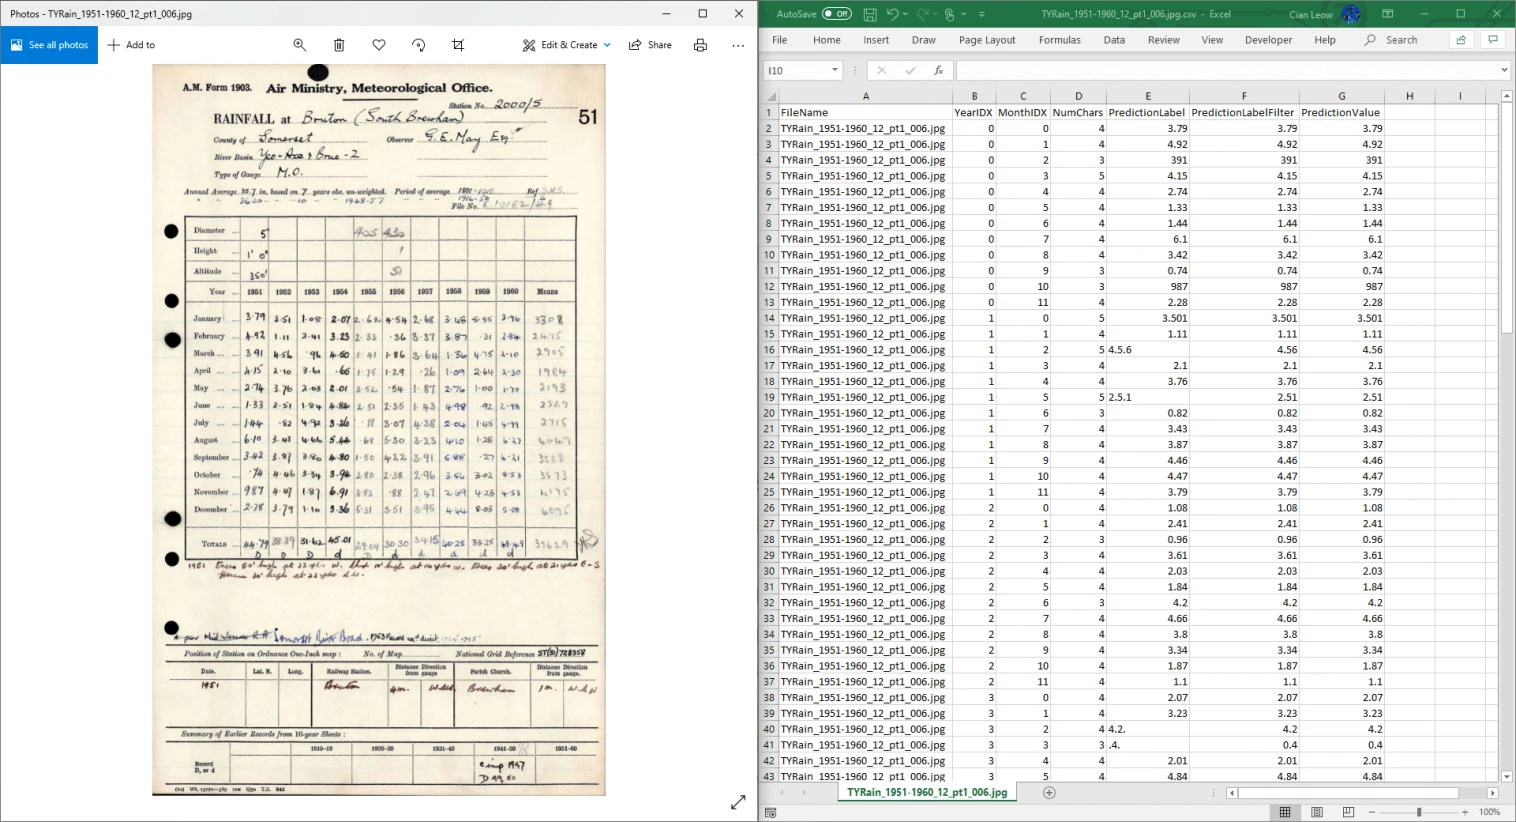 Photos - TYRain_1951-1960_12_pt1_006.jpg
See all photos Add to Edit & Create Share
A.M. Form 1903. Air Ministry, Meteorological Office.
Station No. 2000/5
RAINFALL at Bruton (South Brewham) 51
County of Somerset Observer G.E. May Esq.
River Basin Yeo-Axe & Brue - 2
Type of Gauge M.O.
Annual Average 35.7 in. based on 7 years obs. un-weighted. Period of average 1881-1915 Ref.
1948-57 1916-50
File No.
Diameter ... 5" 405 430
Height ... 1' 0"
Altitude ... 350'
Year ... 1951 1952 1953 1954 1955 1956 1957 1958 1959 1960 Means
January ... 3.79 3.51 1.08 2.07 2.62 4.54 2.68 3.48 5.55 3.96 3308
February ... 4.92 1.11 2.41 3.23 2.33 .36 3.37 3.87 .31 2.84 2475
March ... 3.91 4.56 .96 4.60 1.41 1.86 3.64 1.36 4.75 2.10 2905
April ... 4.15 2.10 3.61 .66 1.75 1.29 .26 1.09 2.64 2.30 1984
May ... 2.74 3.76 2.03 2.01 3.52 .54 1.87 2.76 1.00 1.70 2193
June ... 1.33 2.51 1.84 4.84 2.51 2.35 1.43 4.98 .92 2569
July ... 1.44 .82 4.92 3.26 .18 3.07 4.38 2.04 1.45 2715
August ... 6.10 3.43 4.66 5.44 .68 5.30 3.23 4.10 1.28
September ... 3.42 3.87 3.80 4.80 1.50 4.22 3.91 5.88 .27
October ... .74 4.46 3.34 3.94 2.80 2.38 2.96 3.56 3.02 8.53 3573
November ... 987 4.47 1.87 6.91 3.83 .88 2.47 2.69 4.23 4.53
December ... 2.38 3.79 1.10 3.36 5.31 3.51 3.95 4.44 8.03 5.08
TOTALS ... 44.79 38.39 31.62 45.01 29.04 30.30 34.15 40.25 33.25 49.49 37629
D D D d D d d d d d
Somerset River Board
Position of Station on Ordnance One-Inch map : No. of Map National Grid Reference ST(31)/728358
Date. Lat. N. Long. Railway Station. Distance Direction from gauge Parish Church. Distance Direction from gauge.
1951 Bruton 4m. Brewham 1m. W.S.W
Summary of Earlier Records from 10-year Sheets :
1910-19 1920-30 1931-40 1941-50 1951-60
Record D, or d
1947
D 49, 50
AutoSave Off TYRain_1951-1960_12_pt1_006.jpg.csv - Excel Cian Leow
File Home Insert Draw Page Layout Formulas Data Review View Developer Help Search
I10 fx
A B C D E F G H I
1 FileName YearIDX MonthIDX NumChars PredictionLabel PredictionLabelFilter PredictionValue
2 TYRain_1951-1960_12_pt1_006.jpg 0 0 4 3.79 3.79 3.79
3 TYRain_1951-1960_12_pt1_006.jpg 0 1 4 4.92 4.92 4.92
4 TYRain_1951-1960_12_pt1_006.jpg 0 2 3 391 391 391
5 TYRain_1951-1960_12_pt1_006.jpg 0 3 5 4.15 4.15 4.15
6 TYRain_1951-1960_12_pt1_006.jpg 0 4 4 2.74 2.74 2.74
7 TYRain_1951-1960_12_pt1_006.jpg 0 5 4 1.33 1.33 1.33
8 TYRain_1951-1960_12_pt1_006.jpg 0 6 4 1.44 1.44 1.44
9 TYRain_1951-1960_12_pt1_006.jpg 0 7 4 6.1 6.1 6.1
10 TYRain_1951-1960_12_pt1_006.jpg 0 8 4 3.42 3.42 3.42
11 TYRain_1951-1960_12_pt1_006.jpg 0 9 3 0.74 0.74 0.74
12 TYRain_1951-1960_12_pt1_006.jpg 0 10 3 987 987 987
13 TYRain_1951-1960_12_pt1_006.jpg 0 11 4 2.28 2.28 2.28
14 TYRain_1951-1960_12_pt1_006.jpg 1 0 5 3.501 3.501 3.501
15 TYRain_1951-1960_12_pt1_006.jpg 1 1 4 1.11 1.11 1.11
16 TYRain_1951-1960_12_pt1_006.jpg 1 2 5 4.5.6 4.56 4.56
17 TYRain_1951-1960_12_pt1_006.jpg 1 3 4 2.1 2.1 2.1
18 TYRain_1951-1960_12_pt1_006.jpg 1 4 4 3.76 3.76 3.76
19 TYRain_1951-1960_12_pt1_006.jpg 1 5 5 2.5.1 2.51 2.51
20 TYRain_1951-1960_12_pt1_006.jpg 1 6 3 0.82 0.82 0.82
21 TYRain_1951-1960_12_pt1_006.jpg 1 7 4 3.43 3.43 3.43
22 TYRain_1951-1960_12_pt1_006.jpg 1 8 4 3.87 3.87 3.87
23 TYRain_1951-1960_12_pt1_006.jpg 1 9 4 4.46 4.46 4.46
24 TYRain_1951-1960_12_pt1_006.jpg 1 10 4 4.47 4.47 4.47
25 TYRain_1951-1960_12_pt1_006.jpg 1 11 4 3.79 3.79 3.79
26 TYRain_1951-1960_12_pt1_006.jpg 2 0 4 1.08 1.08 1.08
27 TYRain_1951-1960_12_pt1_006.jpg 2 1 4 2.41 2.41 2.41
28 TYRain_1951-1960_12_pt1_006.jpg 2 2 3 0.96 0.96 0.96
29 TYRain_1951-1960_12_pt1_006.jpg 2 3 4 3.61 3.61 3.61
30 TYRain_1951-1960_12_pt1_006.jpg 2 4 4 2.03 2.03 2.03
31 TYRain_1951-1960_12_pt1_006.jpg 2 5 4 1.84 1.84 1.84
32 TYRain_1951-1960_12_pt1_006.jpg 2 6 3 4.2 4.2 4.2
33 TYRain_1951-1960_12_pt1_006.jpg 2 7 4 4.66 4.66 4.66
34 TYRain_1951-1960_12_pt1_006.jpg 2 8 4 3.8 3.8 3.8
35 TYRain_1951-1960_12_pt1_006.jpg 2 9 4 3.34 3.34 3.34
36 TYRain_1951-1960_12_pt1_006.jpg 2 10 4 1.87 1.87 1.87
37 TYRain_1951-1960_12_pt1_006.jpg 2 11 4 1.1 1.1 1.1
38 TYRain_1951-1960_12_pt1_006.jpg 3 0 4 2.07 2.07 2.07
39 TYRain_1951-1960_12_pt1_006.jpg 3 1 4 3.23 3.23 3.23
40 TYRain_1951-1960_12_pt1_006.jpg 3 2 4 4.2. 4.2 4.2
41 TYRain_1951-1960_12_pt1_006.jpg 3 3 3 .4. 0.4 0.4
42 TYRain_1951-1960_12_pt1_006.jpg 3 4 4 2.01 2.01 2.01
43 TYRain_1951-1960_12_pt1_006.jpg 3 5 4 4.84 4.84 4.84
TYRain_1951-1960_12_pt1_006.jpg
100%